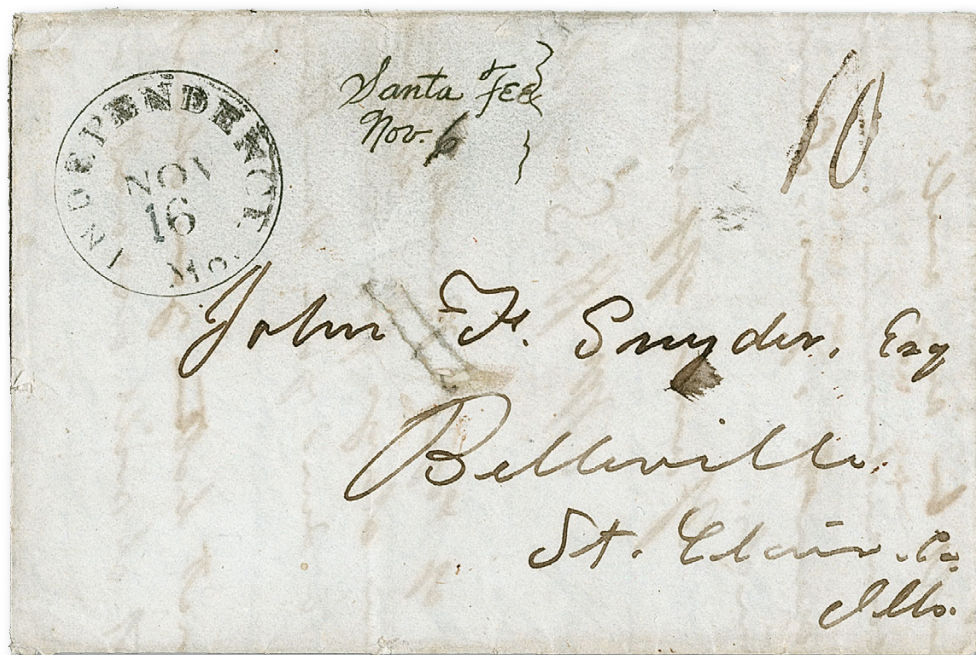 INDEPENDENCE
NOV
16
Mo.
Santa Fee
Nov. 6
10
John F. Snyder, Esq
Belleville.
St. Clair. Co.
Ills.